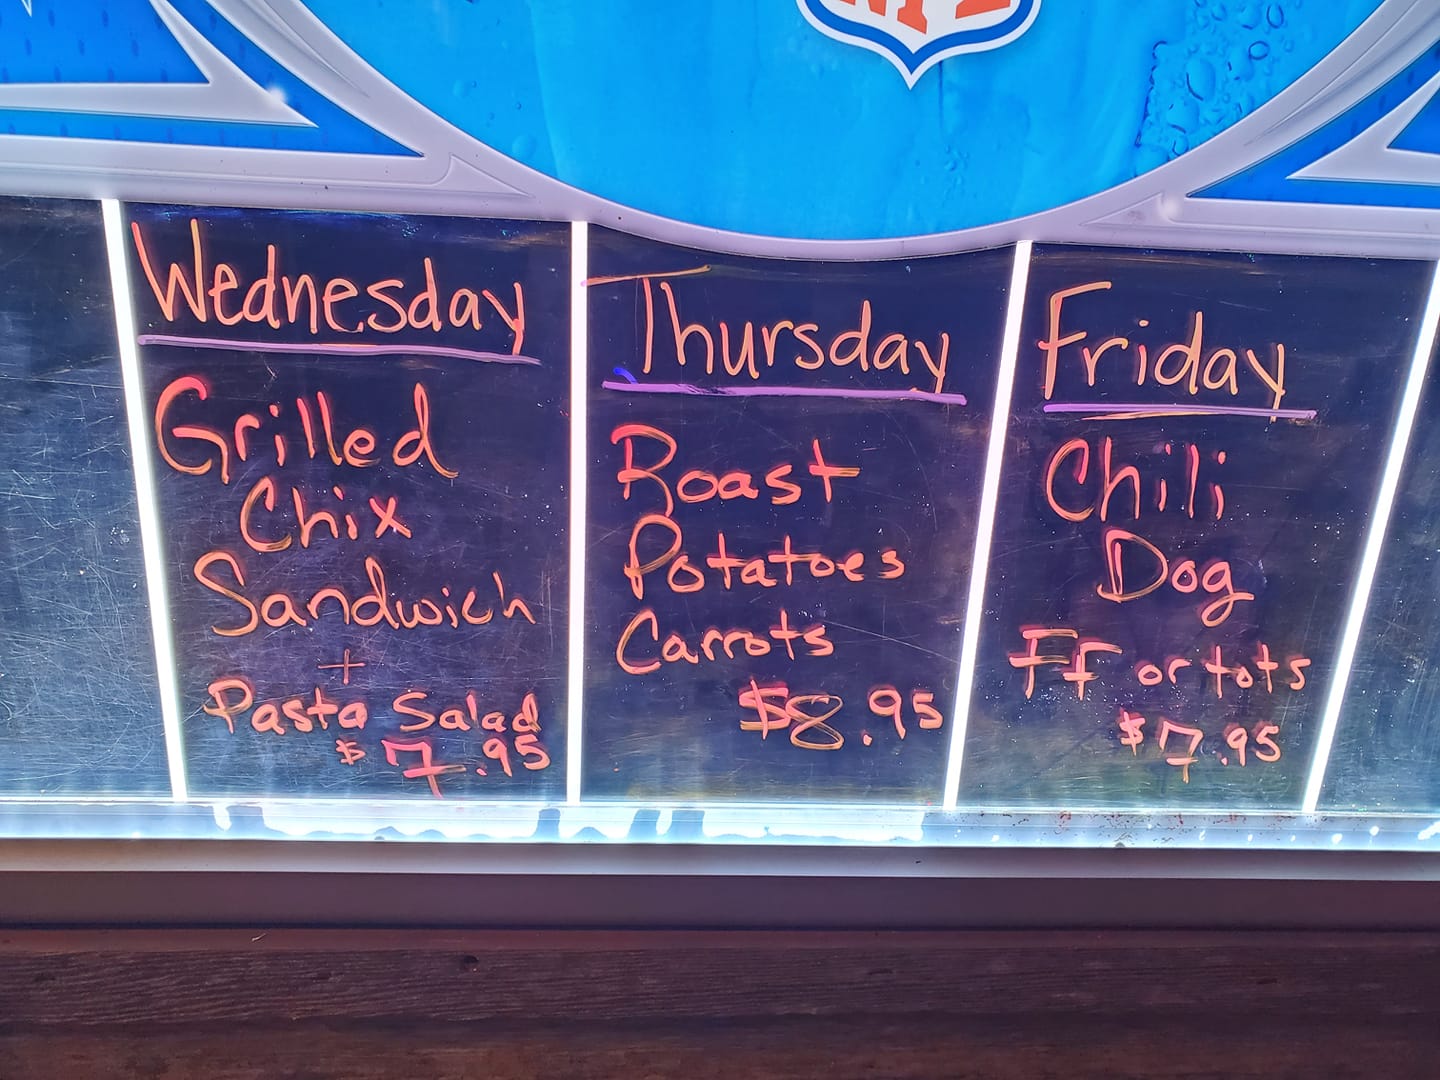 NFL
Wednesday
Grilled
Chix
Sandwich
+
Pasta Salad
$7.95
Thursday
Roast
Potatoes
Carrots
$8.95
Friday
Chili
Dog
FF or tots
$7.95